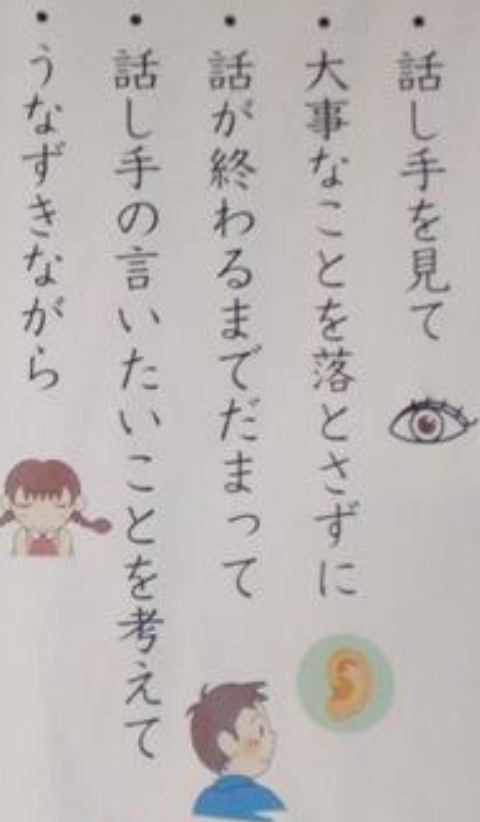 ・話し手を見て
・大事なことを落とさずに
・話が終わるまでだまって
・話し手の言いたいことを考えて
・うなずきながら